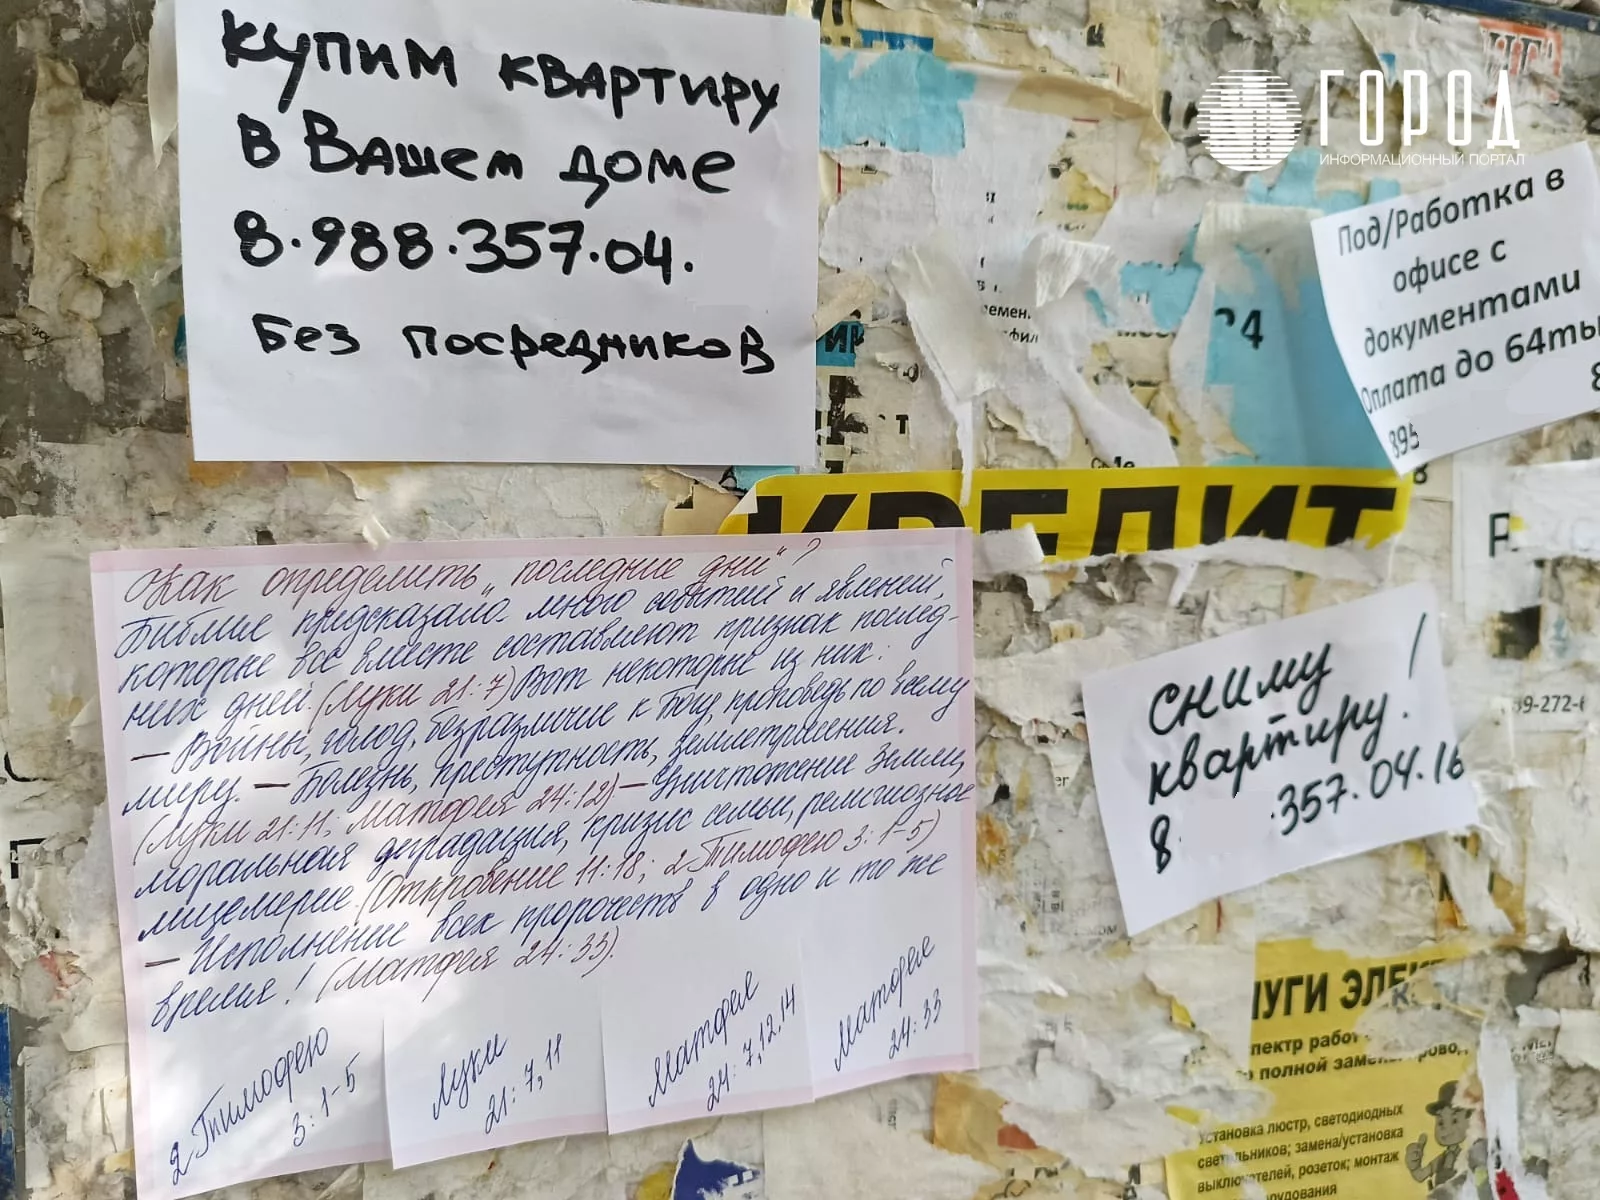 купим квартиру
в Вашем доме
8.988.357.04.
Без посредников
ГОРОД
ИНФОРМАЦИОННЫЙ ПОРТАЛ
Под/Работка в
офисе с
документами
Оплата до 64ты
8
895
емен
фил
КРЕДИТ
Как определить „последние дни"?
Библия предсказала много событий и явлений,
которые все вместе составляют признак послед-
них дней. (Луки 21:7) Вот некоторые из них:
— Войны, голод, безразличие к Богу, проповедь по всему
миру. — Болезнь, преступность, землетрясения.
(Луки 21:11; Матфея 24:12) — Уничтожение Земли,
моральная деградация, кризис семьи, религиозное
лицемерие. (Откровение 11:18; 2 Тимофею 3:1-5)
— Исполнение всех пророчеств в одно и то же
время! (Матфея 24:33).
2 Тимофею
3:1-5
Луки
21:7,11
Матфея
24:7,12,14
Матфея
24:33
сниму
квартиру!
8. .357.04.16
39-272-
УГИ ЭЛЕК
пектр работ
по полной замене провод
Установка люстр, светодиодных
светильников; замена/установка
выключателей, розеток; монтаж
орудования